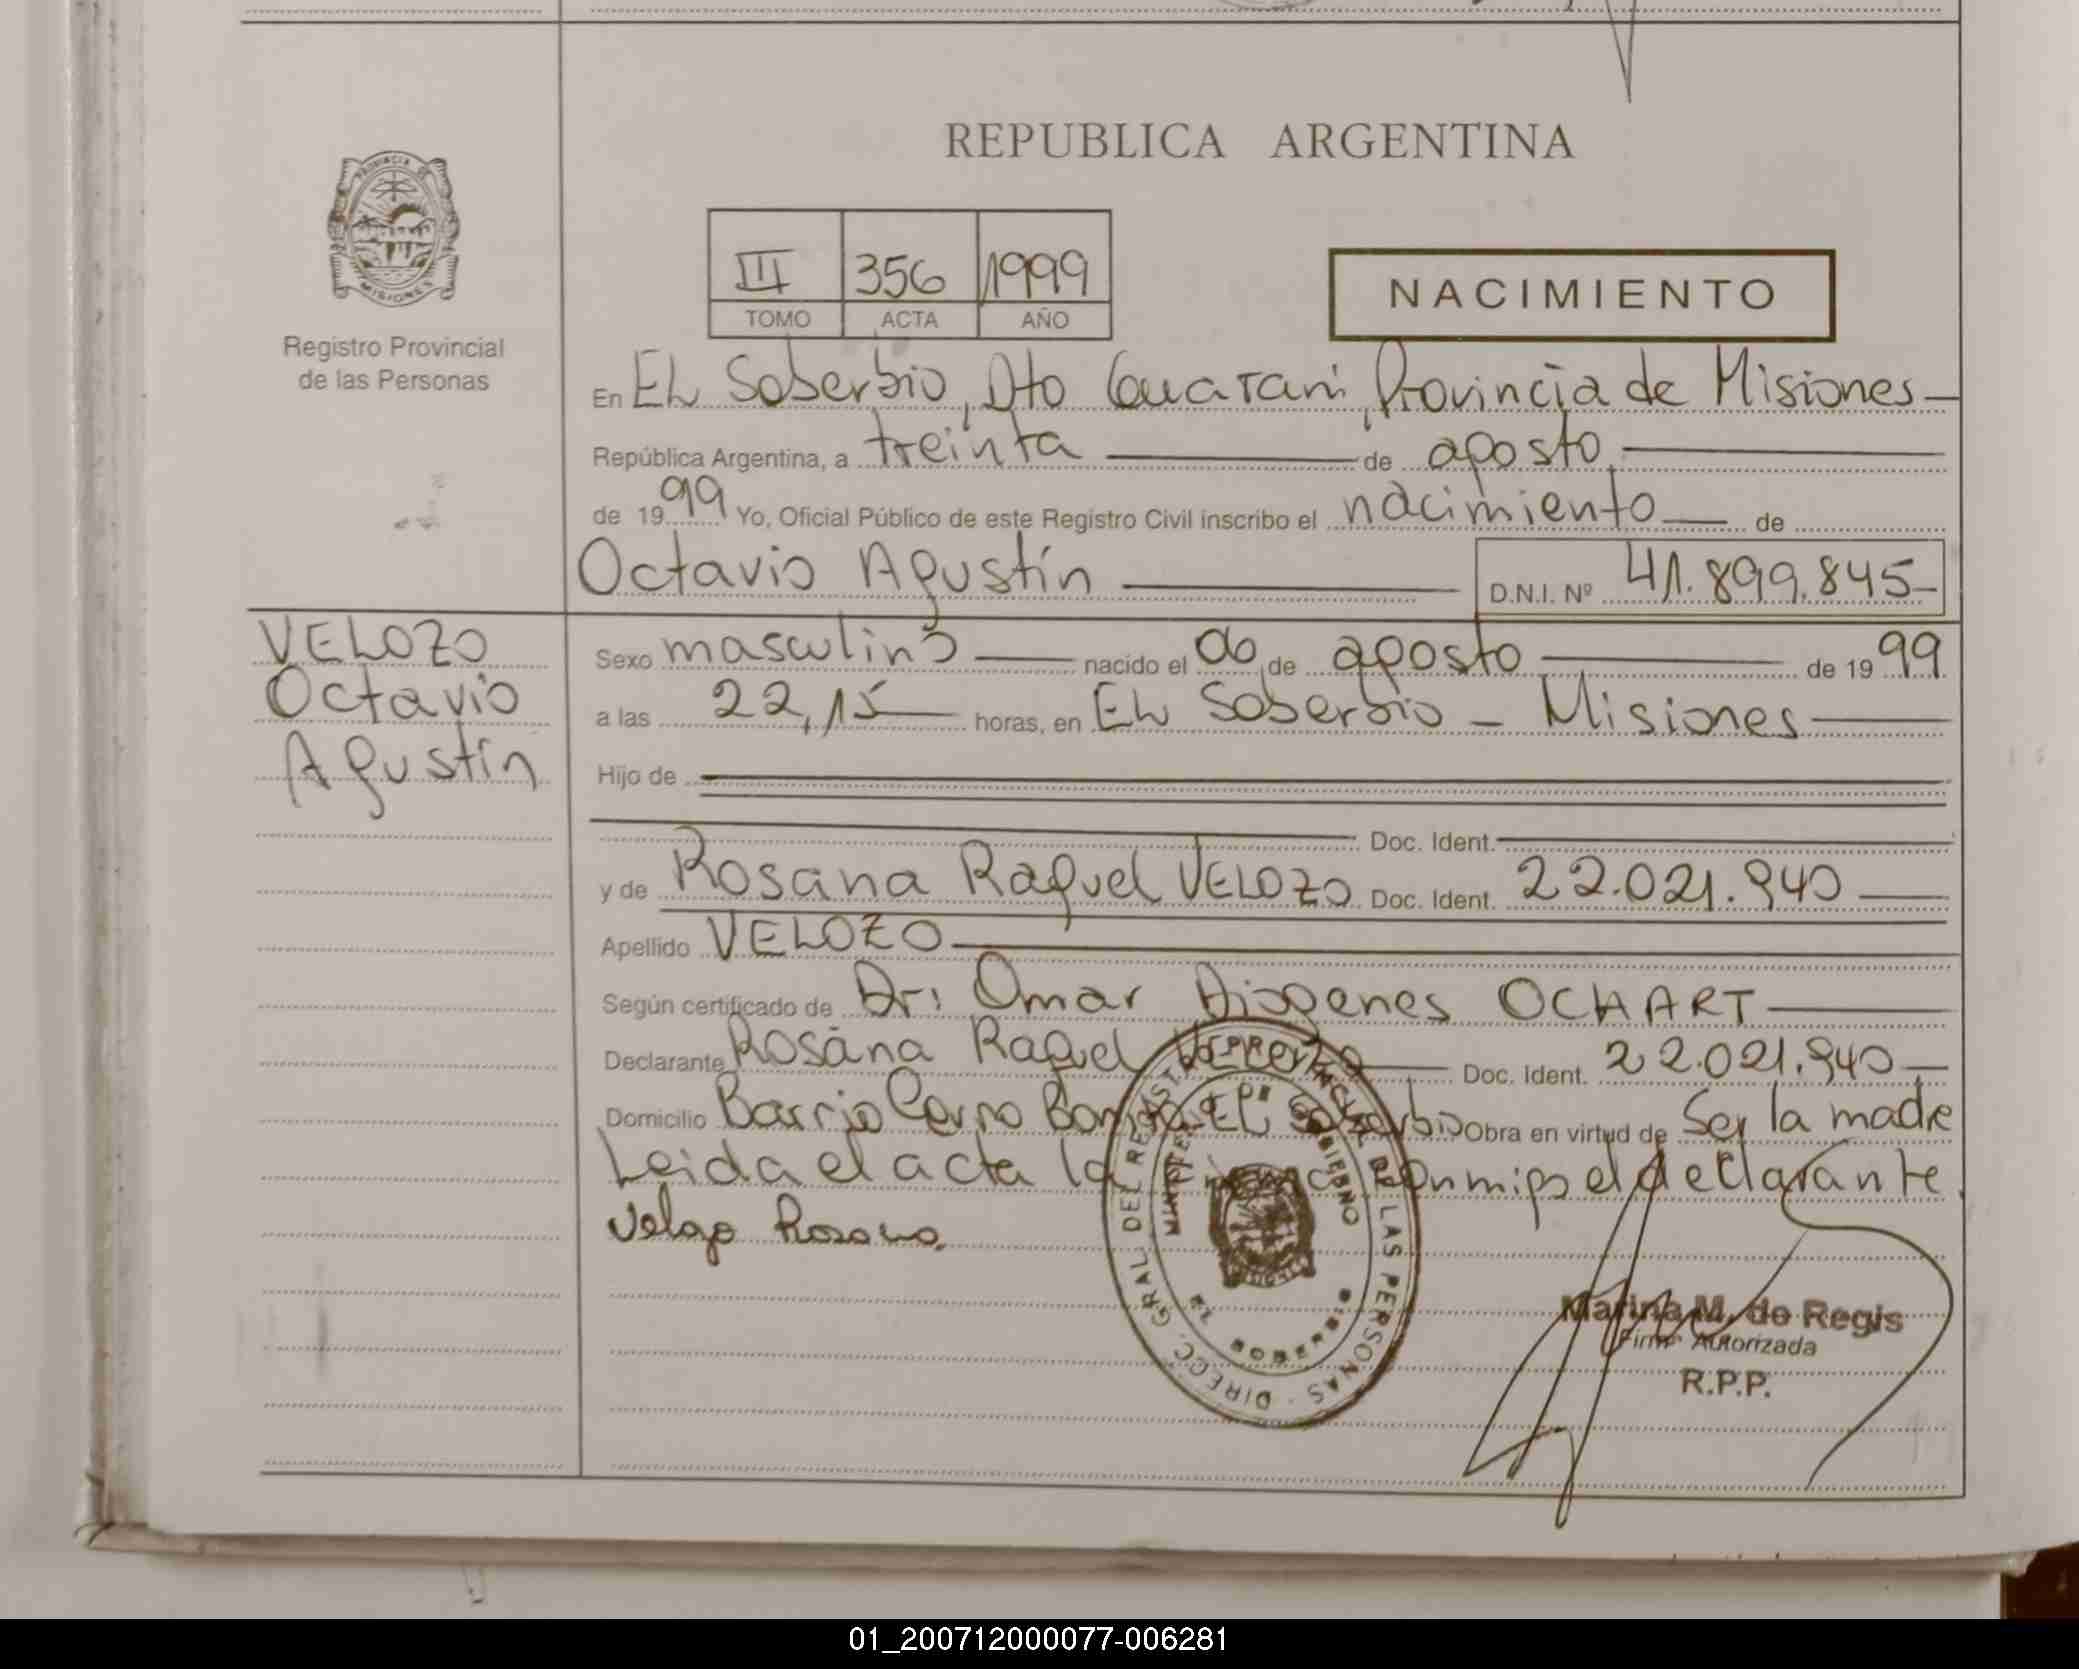 REPUBLICA ARGENTINA
PROVINCIA DE MISIONES
Registro Provincial
de las Personas
III 356 1999
TOMO ACTA AÑO
NACIMIENTO
En EL Soberbio, Dto Guarani, Provincia de Misiones
República Argentina, a treinta de agosto
de 1999 Yo, Oficial Público de este Registro Civil inscribo el nacimiento de
Octavio Agustín D.N.I. Nº 41.899.845
VELOZO
Octavio
Agustín
Sexo masculino nacido el 06 de agosto de 1999
a las 22,15 horas, en EL Soberbio - Misiones
Hijo de
Doc. Ident.
y de Rosana Raquel VELOZO Doc. Ident. 22.021.940
Apellido VELOZO
Según certificado de Dr: Omar Diogenes OCHART
Declarante Rosana Raquel Doc. Ident. 22.021.940
Domicilio Barrio Cerro EL Soberbio Obra en virtud de Ser la madre
Leida el acta la conmigo el declarante.
Rosana
DIRECC. GRAL DEL REGISTRO PROVINCIAL DE LAS PERSONAS
GOBIERNO
MISIONES
Marina M. de Regis
Firma Autorizada
R.P.P.
01_200712000077-006281